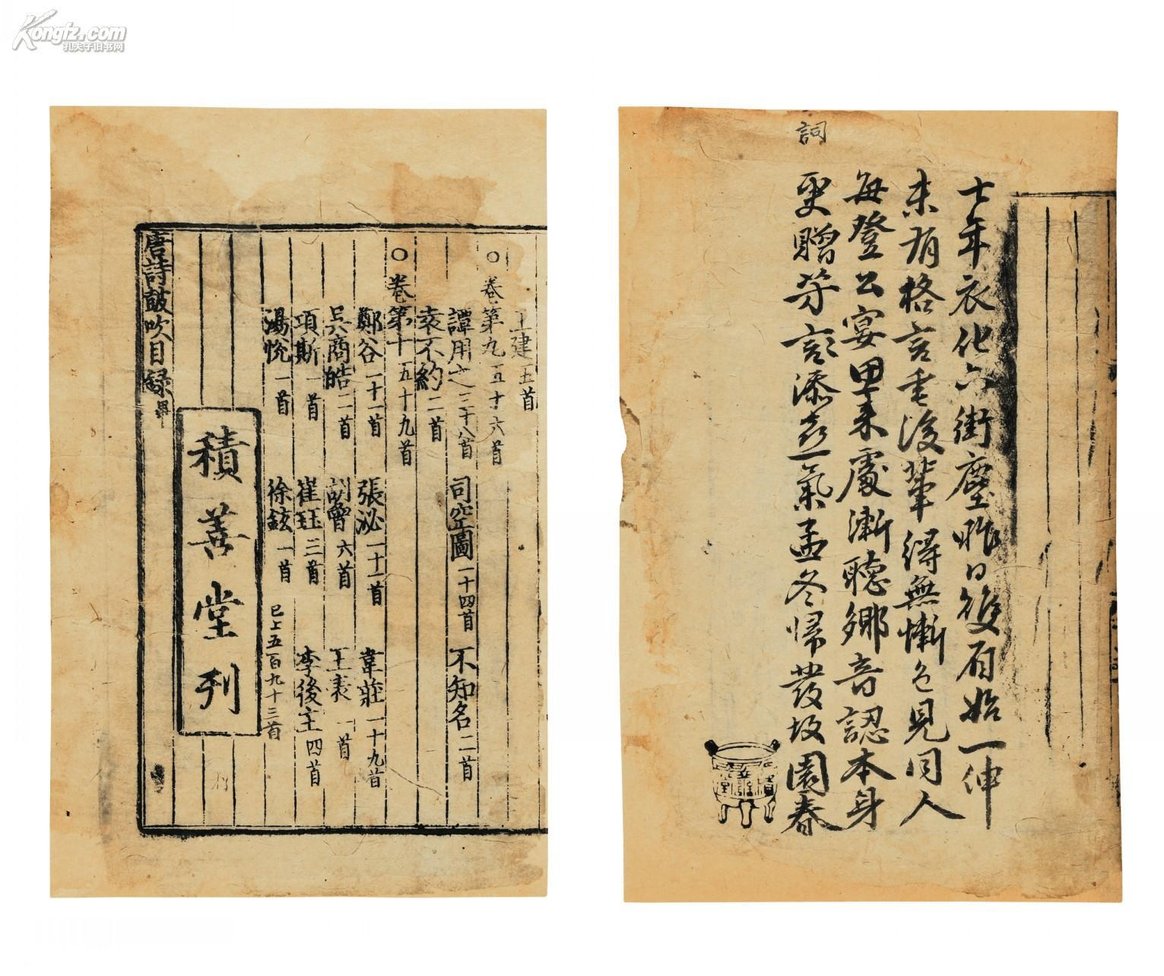 Kongfz.com
孔夫子旧书网
王建五首
○卷第九 五十六首
譚用之三十八首 司空圖一十四首 不知名二首
袁不約二首
○卷第十 五十九首
鄭谷一十一首 張泌一十一首 韋莊一十九首
吳商皓二首 胡曾六首 王表一首
項斯一首 崔珏三首 李後主四首
湯悅一首 徐鉉一首 已上五百九十三首
積善堂刊
唐詩鼓吹目錄畢
七年衣化六街塵昨日雙眉始一伸
未有格言垂後輩得無慚色見同人
每登公宴思來處漸聽鄉音認本身
更贈芳言添喜氣孟冬歸發故園春
詞